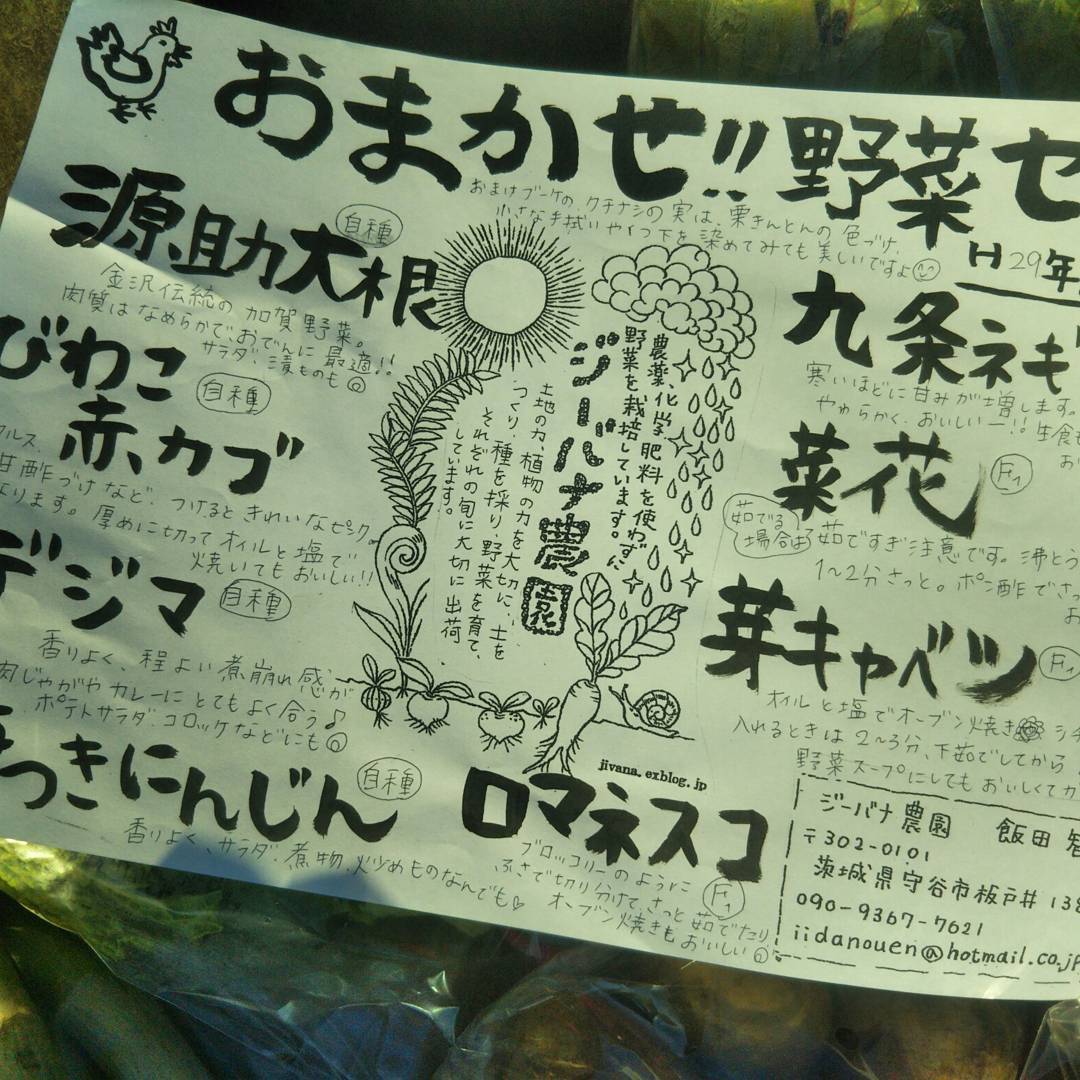 おまかせ!!野菜セ
おまけブーケの、クチナシの実は、栗きんとんの色づけ、
小さな手拭いやくつ下を染めてみても美しいですよ
H29年
源助大根
自種
金沢伝統の加賀野菜。
肉質はなめらかで、おでんに最適!!
サラダ、漬ものも
びわこ
自種
赤カブ
甘酢づけなど、つけるときれいなピンク
なります。厚めに切ってオイルと塩で
焼いてもおいしい!!
デジマ
自種
香りよく、程よい煮崩れ感が
肉じゃがやカレーにとてもよく合う♪
ポテトサラダ、コロッケなどにも
つきにんじん
自種
香りよく、サラダ、煮物、炒めものなんでも♡
農薬化学肥料を使わずに
野菜を栽培しています。
ジーバナ農園
土地の力、植物の力を大切に、土を
つくり、種を採り、野菜を育て、
それぞれの旬に大切に出荷
しています。
jivana.exblog.jp
ロマネスコ
F1
ブロッコリーのように
ふさで切り分けて、さっと茹でたり、
オーブン焼きもおいしい
九条ネギ
寒いほどに甘みが増します。
やわらかく、おいしいー!!生食も
菜花
F1
茹でる
場合は
茹ですぎ注意です。沸とう
1〜2分さっと。ポン酢でさっ
芽キャベツ
F1
オイルと塩でオーブン焼き
入れるときは2〜3分、下茹でしてから
野菜スープにしてもおいしくて
ジーバナ農園 飯田
〒302-0101
茨城県守谷市板戸井138
090-9367-7621
iidanouen@hotmail.co.jp